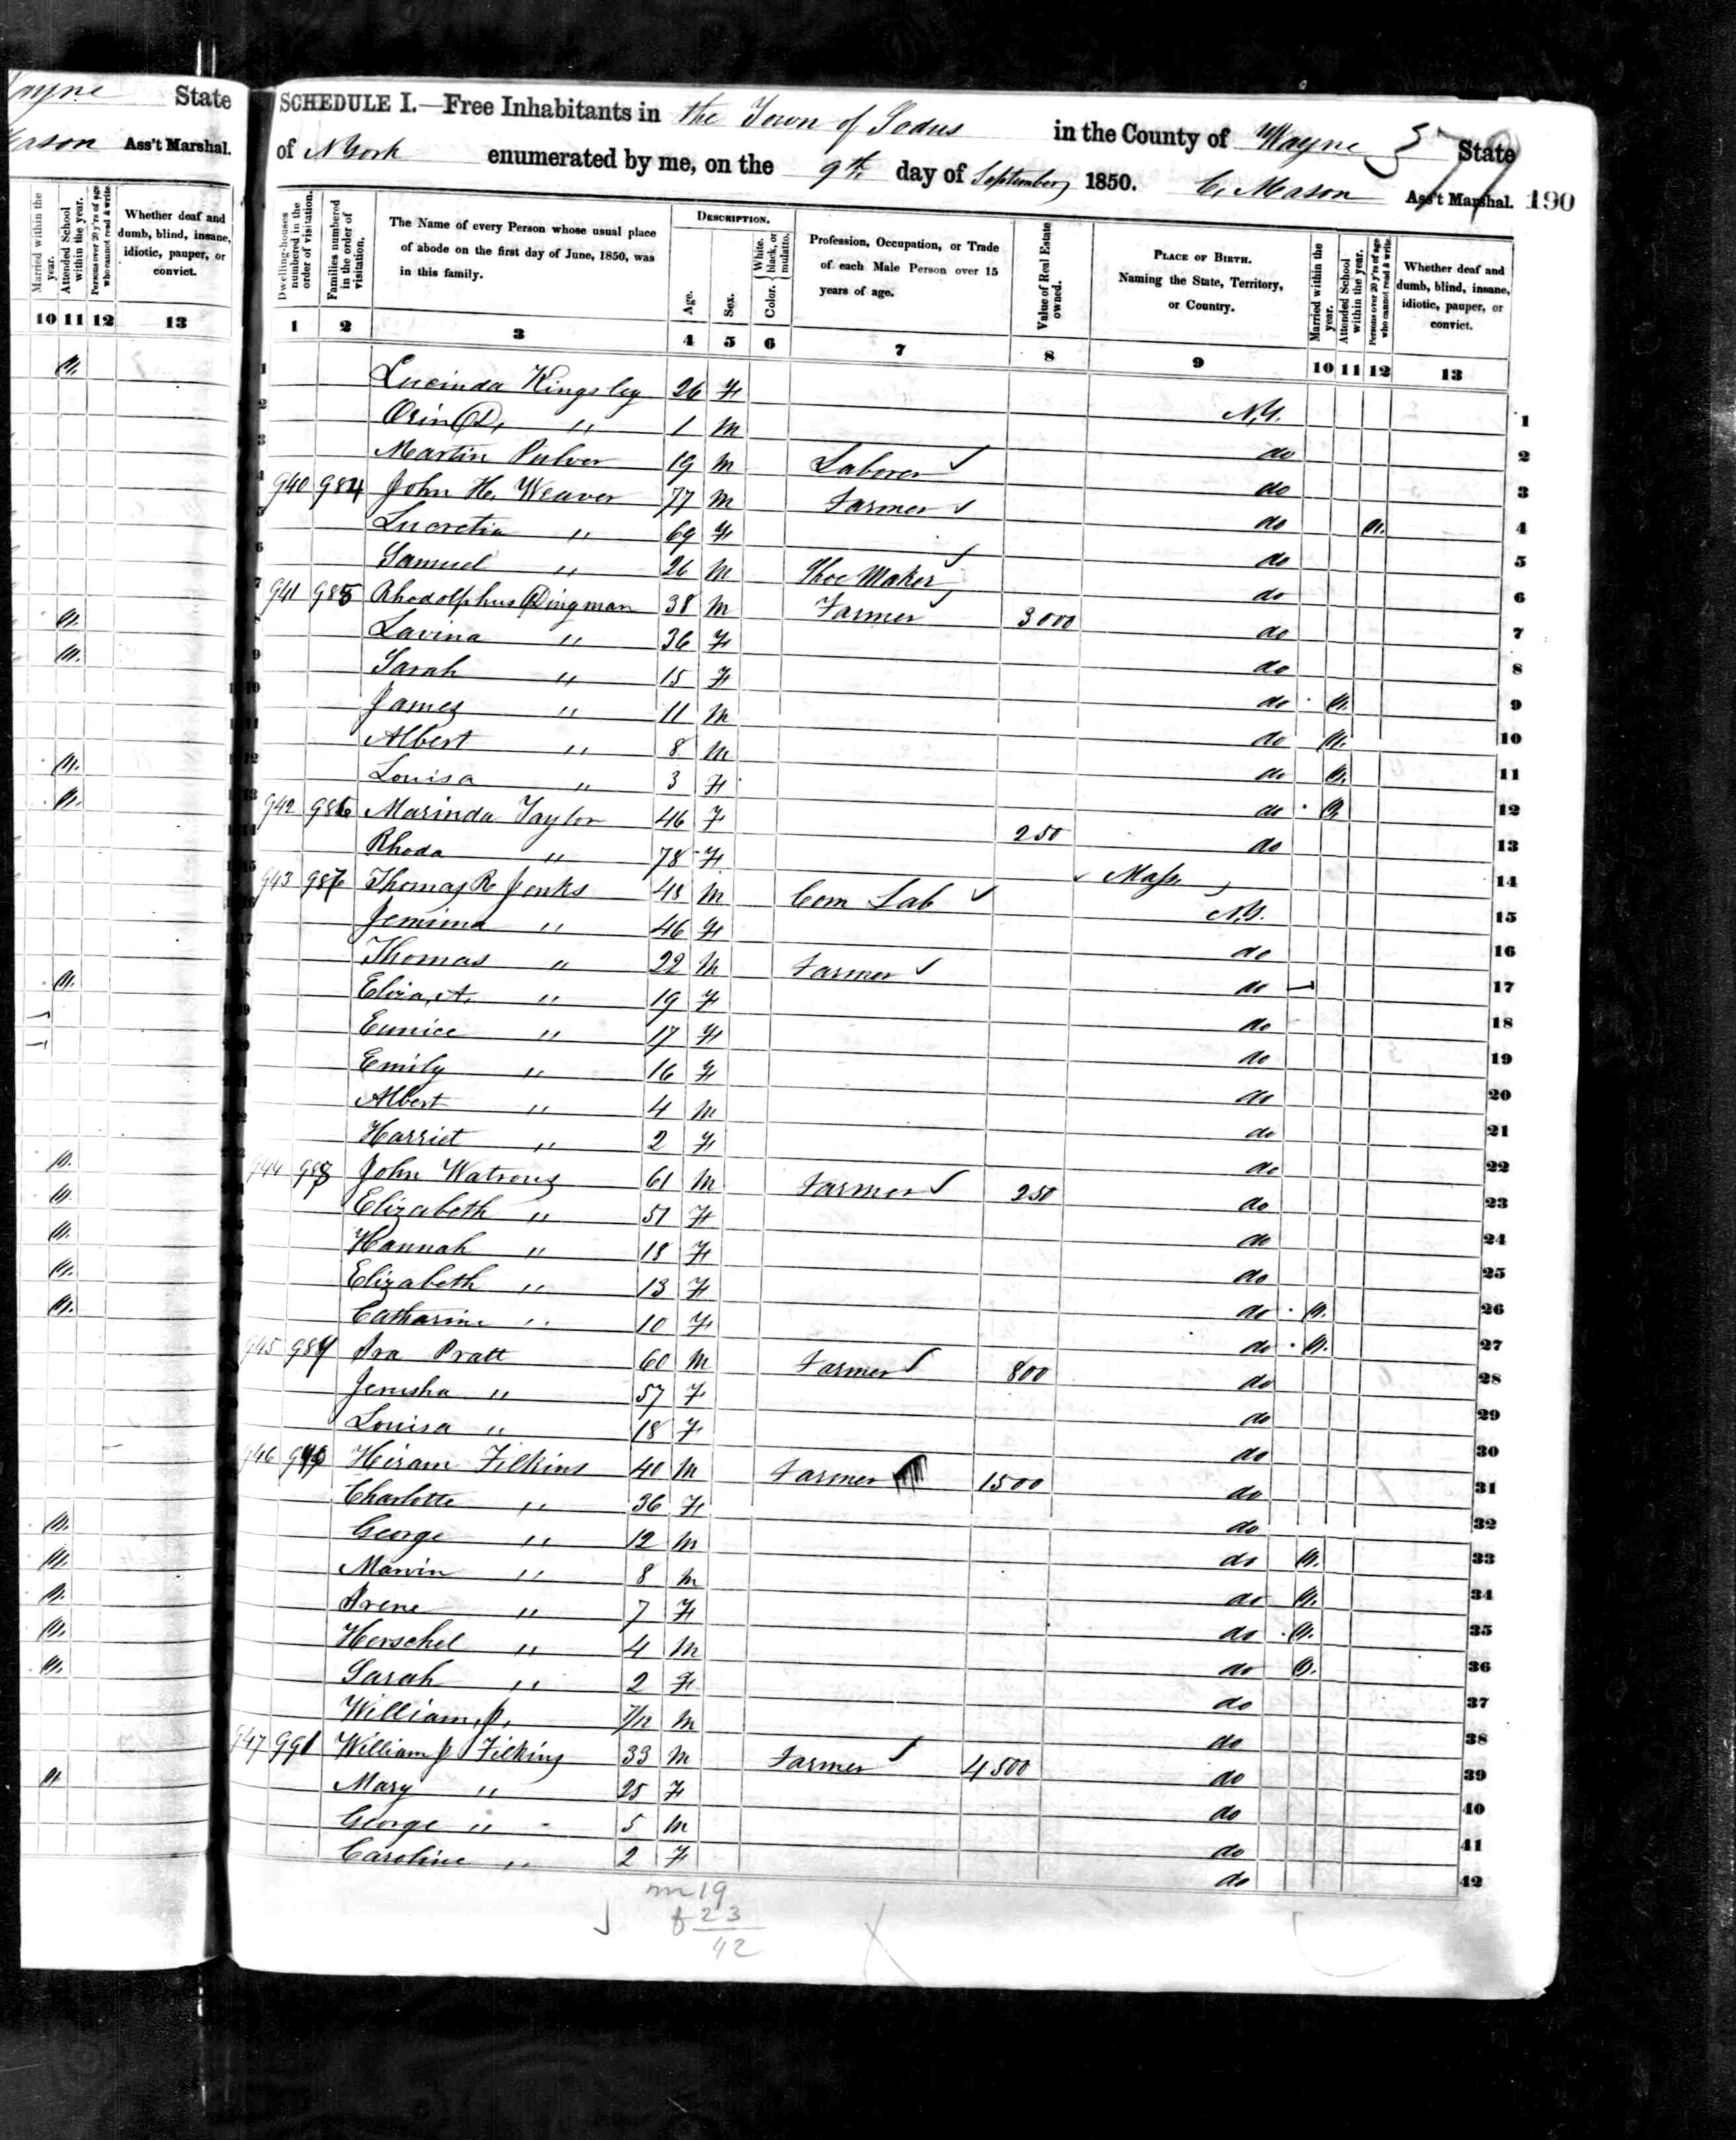 ayne State
erson Ass't Marshal.
Married within the year.
Attended School within the year.
Persons over 20 y'rs of age who cannot read & write.
Whether deaf and dumb, blind, insane, idiotic, pauper, or convict.
10 11 12 13
SCHEDULE I.—Free Inhabitants in the Town of Sodus in the County of Wayne State 379
of N York enumerated by me, on the 9th day of September, 1850. C. Mason Ass't Marshal. 190
Dwelling-houses numbered in the order of visitation.
Families numbered in the order of visitation.
The Name of every Person whose usual place of abode on the first day of June, 1850, was in this family.
DESCRIPTION.
Age.
Sex.
Color. White, black, or mulatto.
Profession, Occupation, or Trade of each Male Person over 15 years of age.
Value of Real Estate owned.
PLACE OF BIRTH. Naming the State, Territory, or Country.
Married within the year.
Attended School within the year.
Persons over 20 y'rs of age who cannot read & write.
Whether deaf and dumb, blind, insane, idiotic, pauper, or convict.
1 2 3 4 5 6 7 8 9 10 11 12 13
1 Lucinda Kingsley 26 F N.Y. 1
2 Orin D. " 1 M do 2
3 Martin Pulver 19 M Laborer do 3
4 940 984 John H. Weaver 77 M Farmer do 4
5 Lucretia " 69 F do 5
6 Samuel " 26 M Shoe Maker do 6
7 941 985 Rhodolphus Dingman 38 M Farmer 3000 do 7
Lavina " 36 F do 8
9 Sarah " 15 F do 9
10 James " 11 M do 10
11 Albert " 8 M do 11
12 Louisa " 3 F do 12
13 942 986 Marinda Taylor 46 F 250 do 13
Rhoda " 78 F Mass 14
15 943 987 Thomas R Jenks 48 M Com Lab N.Y. 15
16 Jemima " 46 F do 16
17 Thomas " 22 M Farmer do 17
Eliza A. " 19 F do 18
Eunice " 17 F do 19
Emily " 16 F do 20
Albert " 4 M do 21
Harriet " 2 F do 22
944 988 John Watrous 61 M Farmer 250 do 23
Elizabeth " 51 F do 24
Hannah " 18 F do 25
Elizabeth " 13 F do 26
Catharine " 10 F do 27
945 989 Ira Pratt 60 M Farmer 800 do 28
Jerusha " 57 F do 29
Louisa " 18 F do 30
946 990 Hiram Filkins 40 M Farmer 1500 do 31
Charlotte " 36 F do 32
George " 12 M do 33
Marvin " 8 M do 34
Irene " 7 F do 35
Herschel " 4 M do 36
Sarah " 2 F do 37
William, J. 7/12 M do 38
947 991 William J Filkins 33 M Farmer 4500 do 39
Mary " 25 F do 40
George " 5 M do 41
Caroline " 2 F do 42
m 19
f 23
42